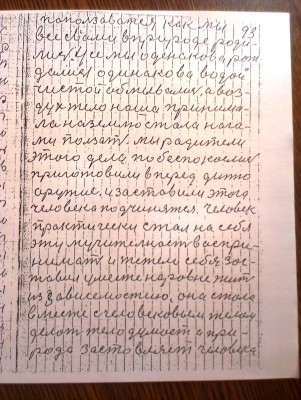 93
пользоватся как мы
все сами в природе роди
лис и мы одинакова рож
дались одинакова водой
чистой обмывалис а воз
дух тело наша принима
ла на землю стала нага
ми ползат мы радители
этого дела
приготовили в перед дитю
оружие и заставили этого
человека подчинятся. Человек
практически стал на себя
эту мучителност воспри
нимат и жетели себя зас
тавил уместе наровне жит
из зависемостию, она стала
вместе с человековым телом
делат тело думает а при
рода заставляет человека